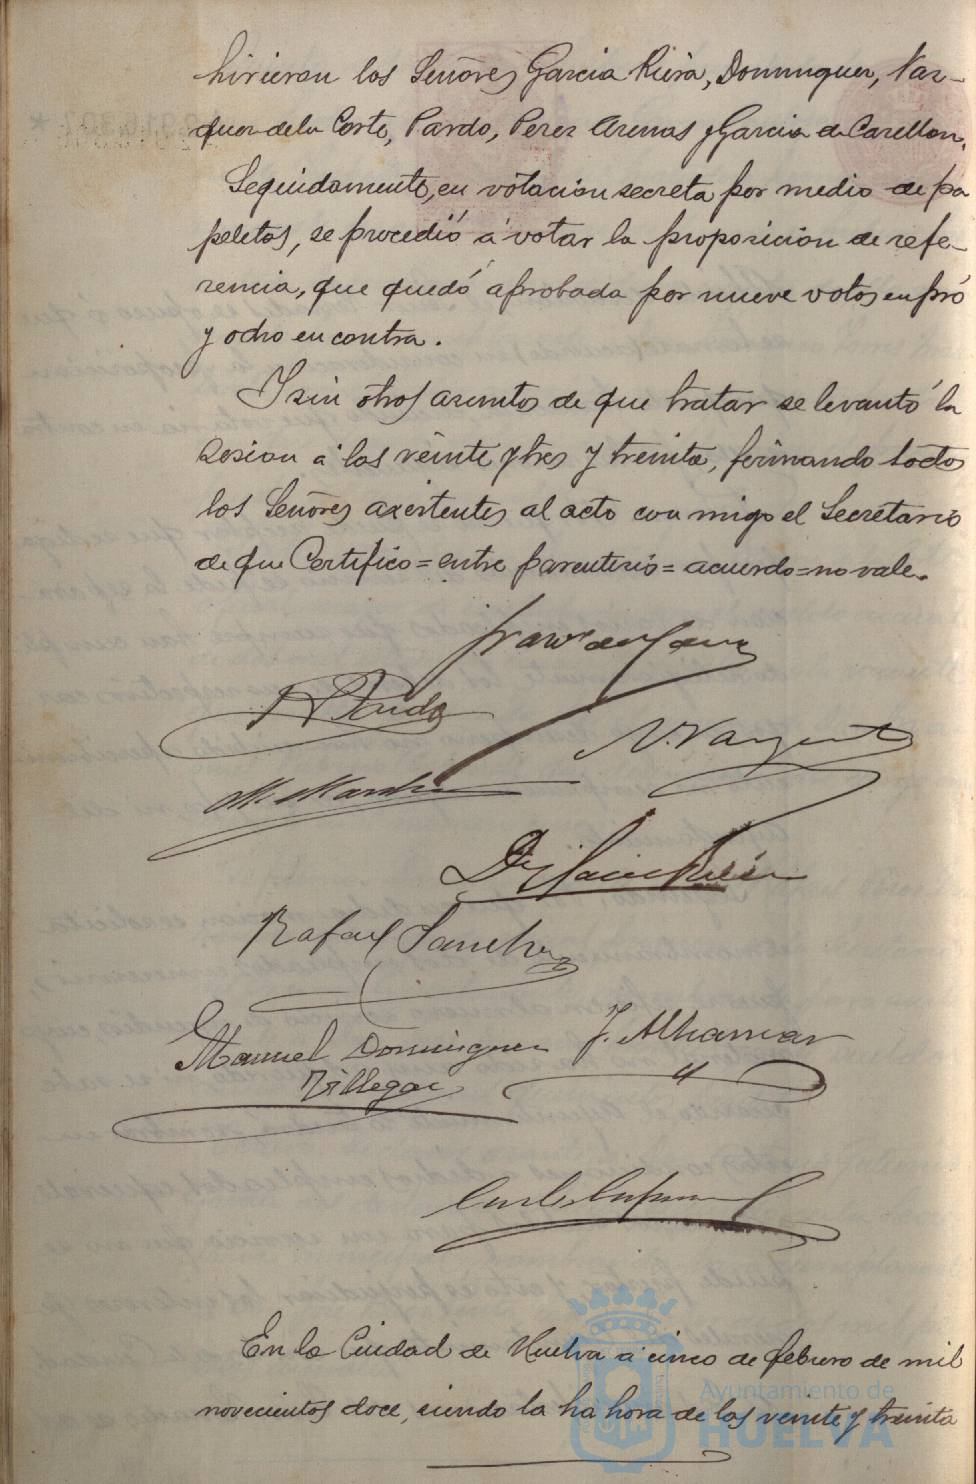 hirieron los Señores Garcia Riera, Dominguez, Vaz-
quez de la Corte, Pardo, Perez Arenas y Garcia de Castellon.
Seguidamente, en votacion secreta por medio de pa
peletas, se procedió á votar la proposicion de refe-
rencia, que quedó aprobada por nueve votos en pró
y ocho en contra.
Y sin otros asuntos de que tratar se levantó la
sesion á las veinte y tres y treinta, firmando todos
los Señores asistentes al acto con migo el Secretario
de que Certifico = entre parentesis = acuerdo = no vale.
Pardo
N. Vazquez
Garcia Riera
Rafael Sanchez
Manuel Dominguez J. Alhamar
Villegas
En la Ciudad de Huelva á cinco de febrero de mil
novecientos doce, siendo la ha hora de las veinte y treinta
Ayuntamiento de
HUELVA